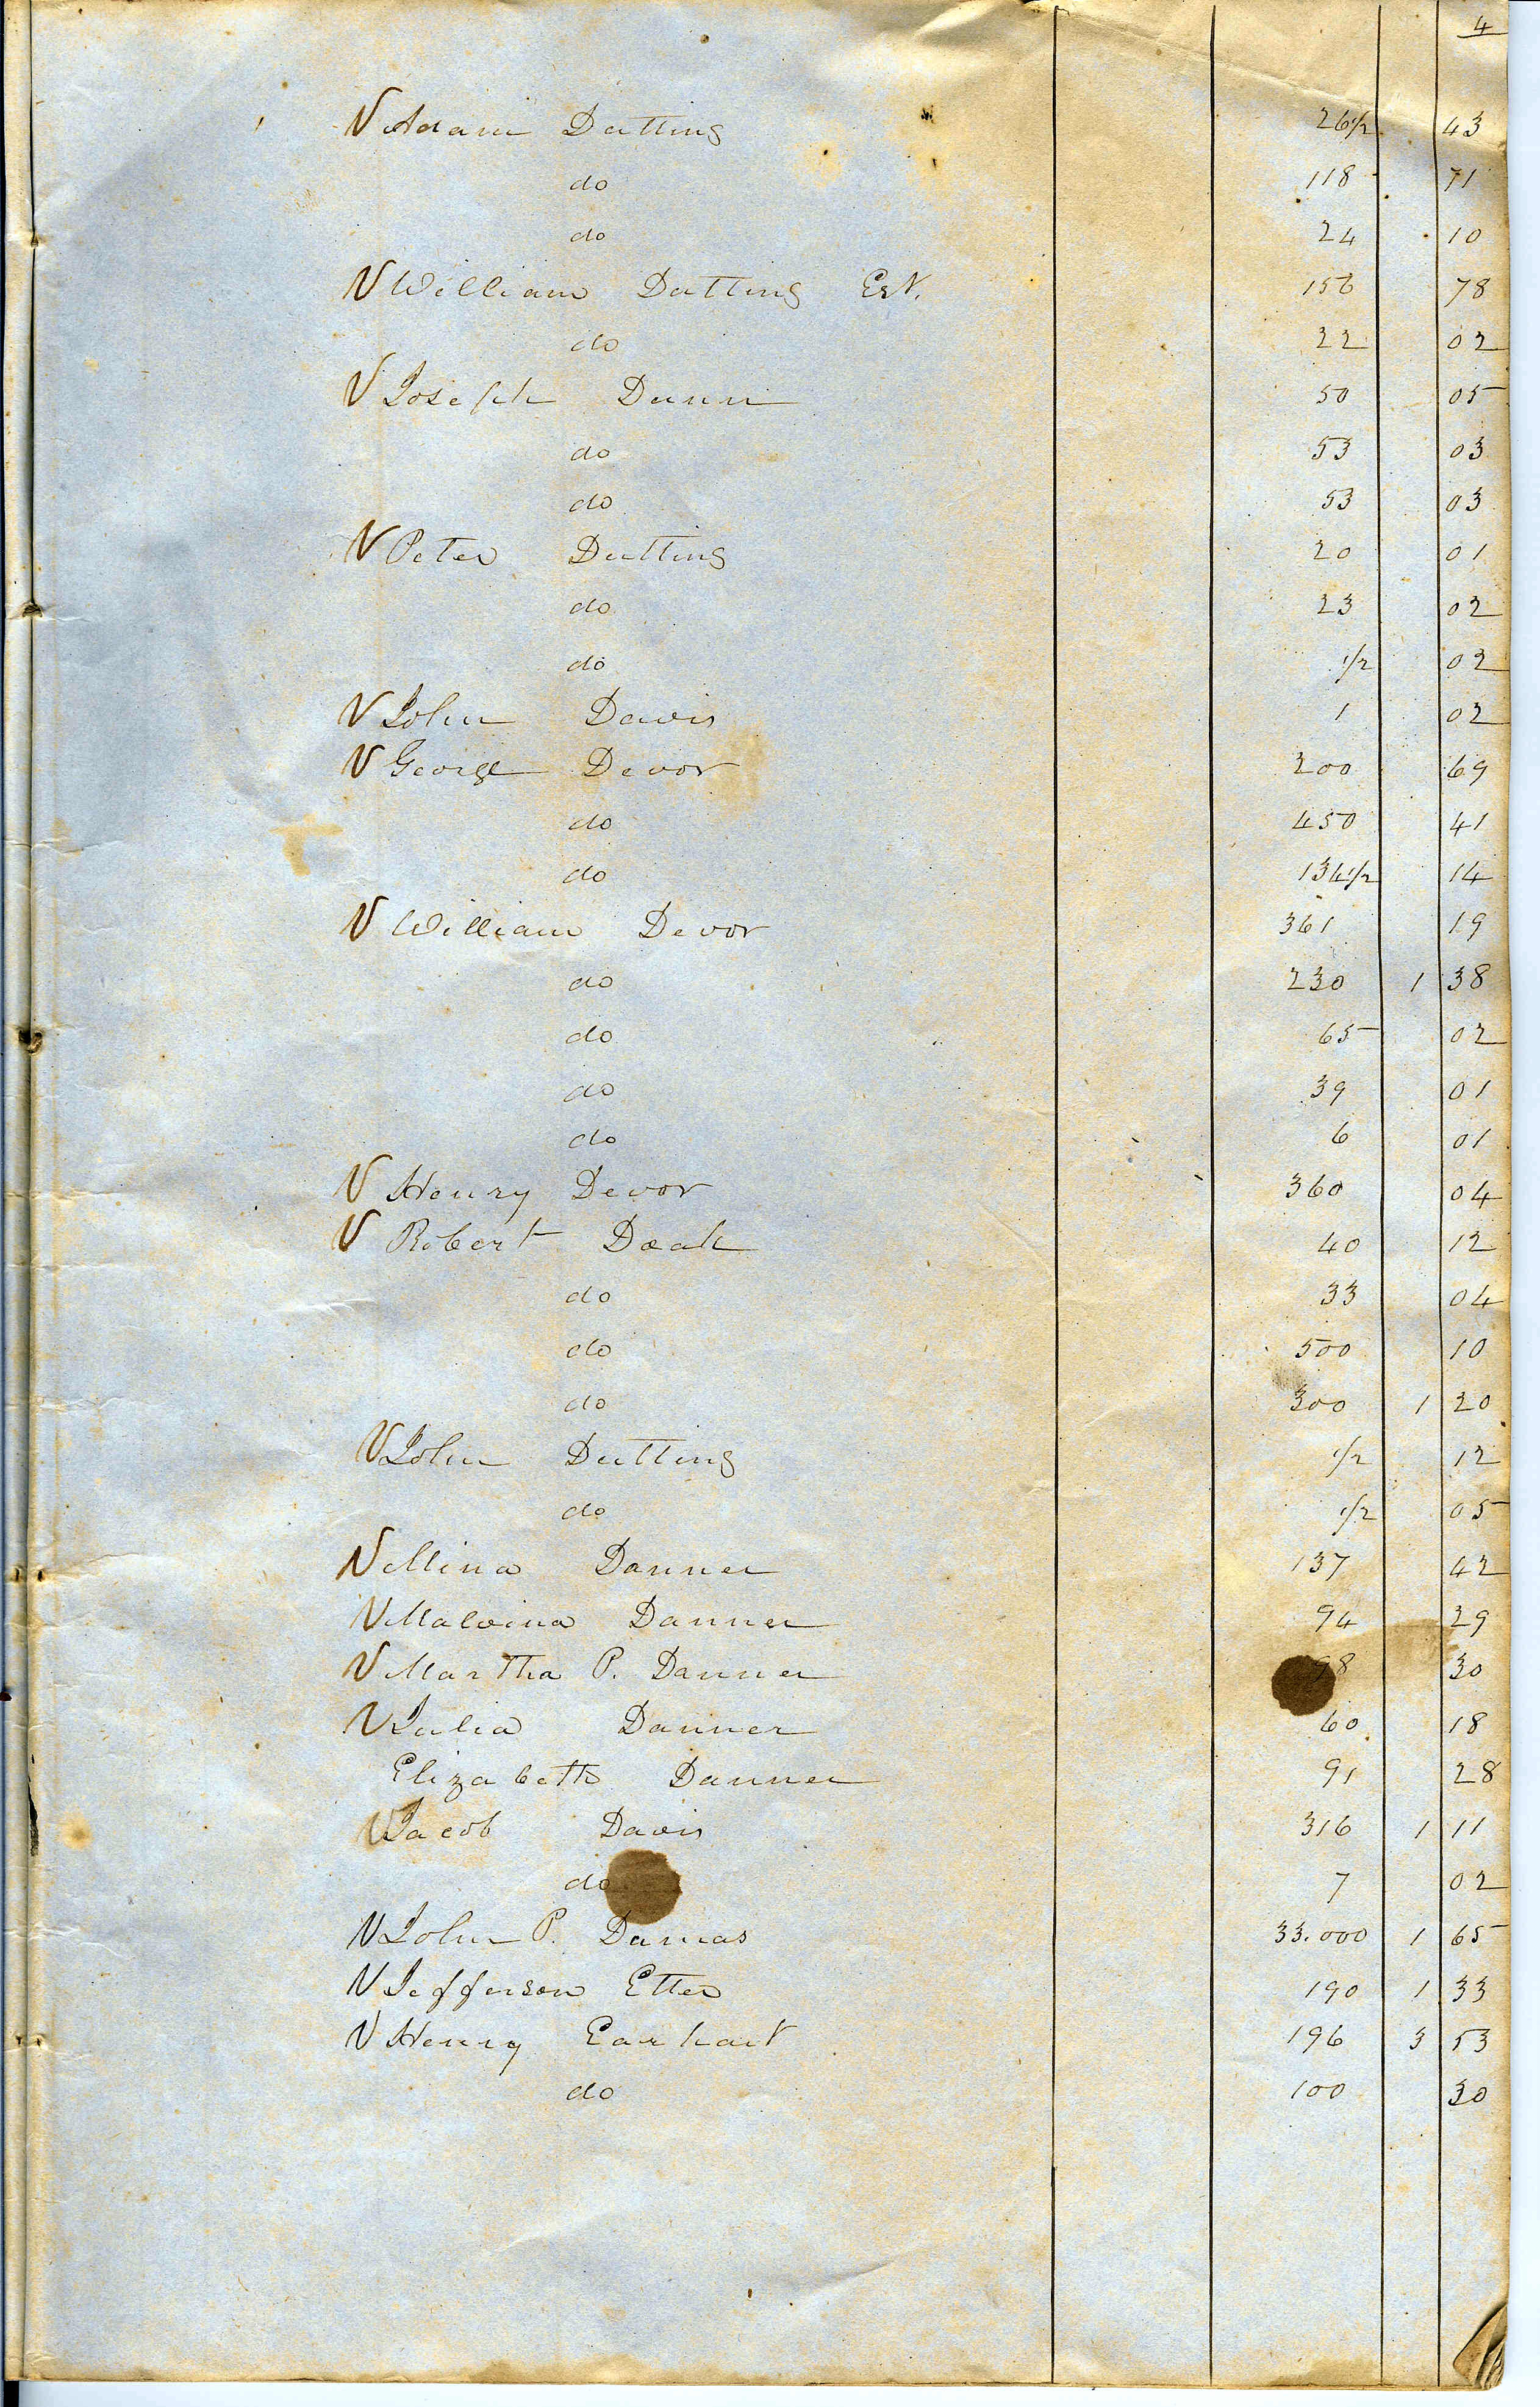 4
V Adam Dutting 26 1/2 43
do 118 71
do 24 10
V William Dutting Est. 156 78
do 22 02
V Joseph Dunn 50 05
do 53 03
do 53 03
V Peter Dutting 20 01
do 23 02
do 1/2 02
V John Davis 1 02
V George Devor 200 69
do 450 41
do 134 1/2 14
V William Devor 361 19
do 230 1 38
do 65 02
do 39 01
do 6 01
V Henry Devor 360 04
V Robert Doak 40 12
do 33 04
do 500 10
do 300 1 20
V John Dutting 1/2 12
do 1/2 05
V Mina Danner 137 42
V Malvina Danner 94 29
V Martha P. Danner 98 30
V Julia Danner 60 18
Elizabeth Danner 91 28
V Jacob Davis 316 1 11
do 7 02
V John P. Dumas 33.000 1 65
V Jefferson Etter 190 1 33
V Henry Earhart 196 3 53
do 100 30